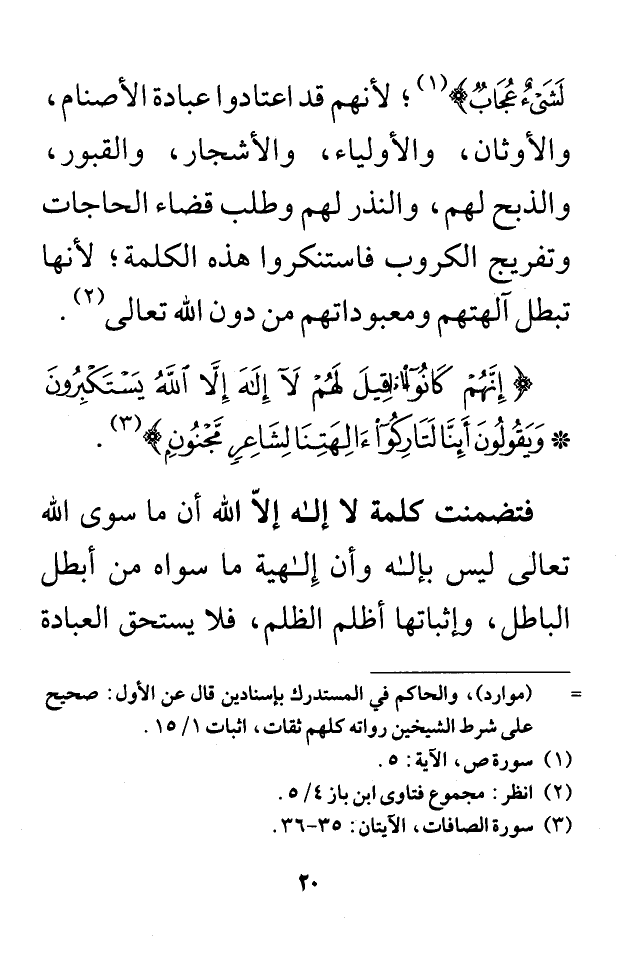 لَشَىْءٌ عُجَابٌ﴾(١) ؛ لأنهم قد اعتادوا عبادة الأصنام،
والأوثان، والأولياء، والأشجار، والقبور،
والذبح لهم، والنذر لهم وطلب قضاء الحاجات
وتفريج الكروب فاستنكروا هذه الكلمة؛ لأنها
تبطل آلهتهم ومعبوداتهم من دون الله تعالى(٢) .
﴿ إِنَّهُمْ كَانُوٓا۟ إِذَا قِيلَ لَهُمْ لَآ إِلَٰهَ إِلَّا ٱللَّهُ يَسْتَكْبِرُونَ
* وَيَقُولُونَ أَئِنَّا لَتَارِكُوٓا۟ ءَالِهَتِنَا لِشَاعِرٍ مَّجْنُونٍ﴾(٣) .
فتضمنت كلمة لا إلـٰه إلاّ الله أن ما سوى الله
تعالى ليس بإلـٰه وأن إلـٰهية ما سواه من أبطل
الباطل، وإثباتها أظلم الظلم، فلا يستحق العبادة
= (موارد)، والحاكم في المستدرك بإسنادين قال عن الأول: صحيح
على شرط الشيخين رواته كلهم ثقات، اثبات ١/ ١٥ .
(١) سورة ص، الآية: ٥ .
(٢) انظر: مجموع فتاوى ابن باز ٤/ ٥ .
(٣) سورة الصافات، الآيتان: ٣٥-٣٦ .
٢٠